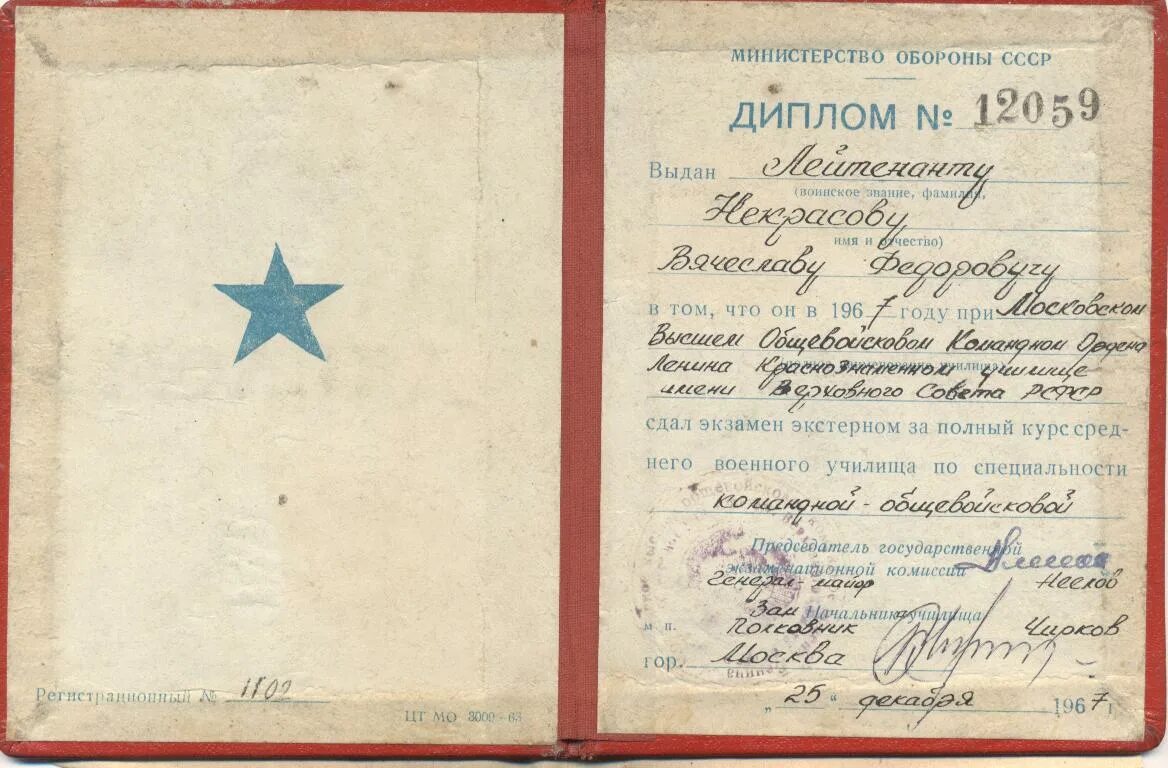 Регистрационный № 1102
ЦТ МО 3000-63
МИНИСТЕРСТВО ОБОРОНЫ СССР
ДИПЛОМ № 12059
Выдан Лейтенанту
(воинское звание, фамилия,
Некрасову
имя и отчество)
Вячеславу Федоровичу
в том, что он в 1967 году при Московском
Высшем Общевойсковом Командном Ордена
Ленина Краснознаменном училище
имени Верховного Совета РСФСР
сдал экзамен экстерном за полный курс сред-
него военного училища по специальности
командной-общевойсковой
Председатель государственной
экзаменационной комиссии
Генерал-майор Неелов
Зам Начальник училища
м. п. Полковник Чирков
гор. Москва
„25“ декабря 1967 г.